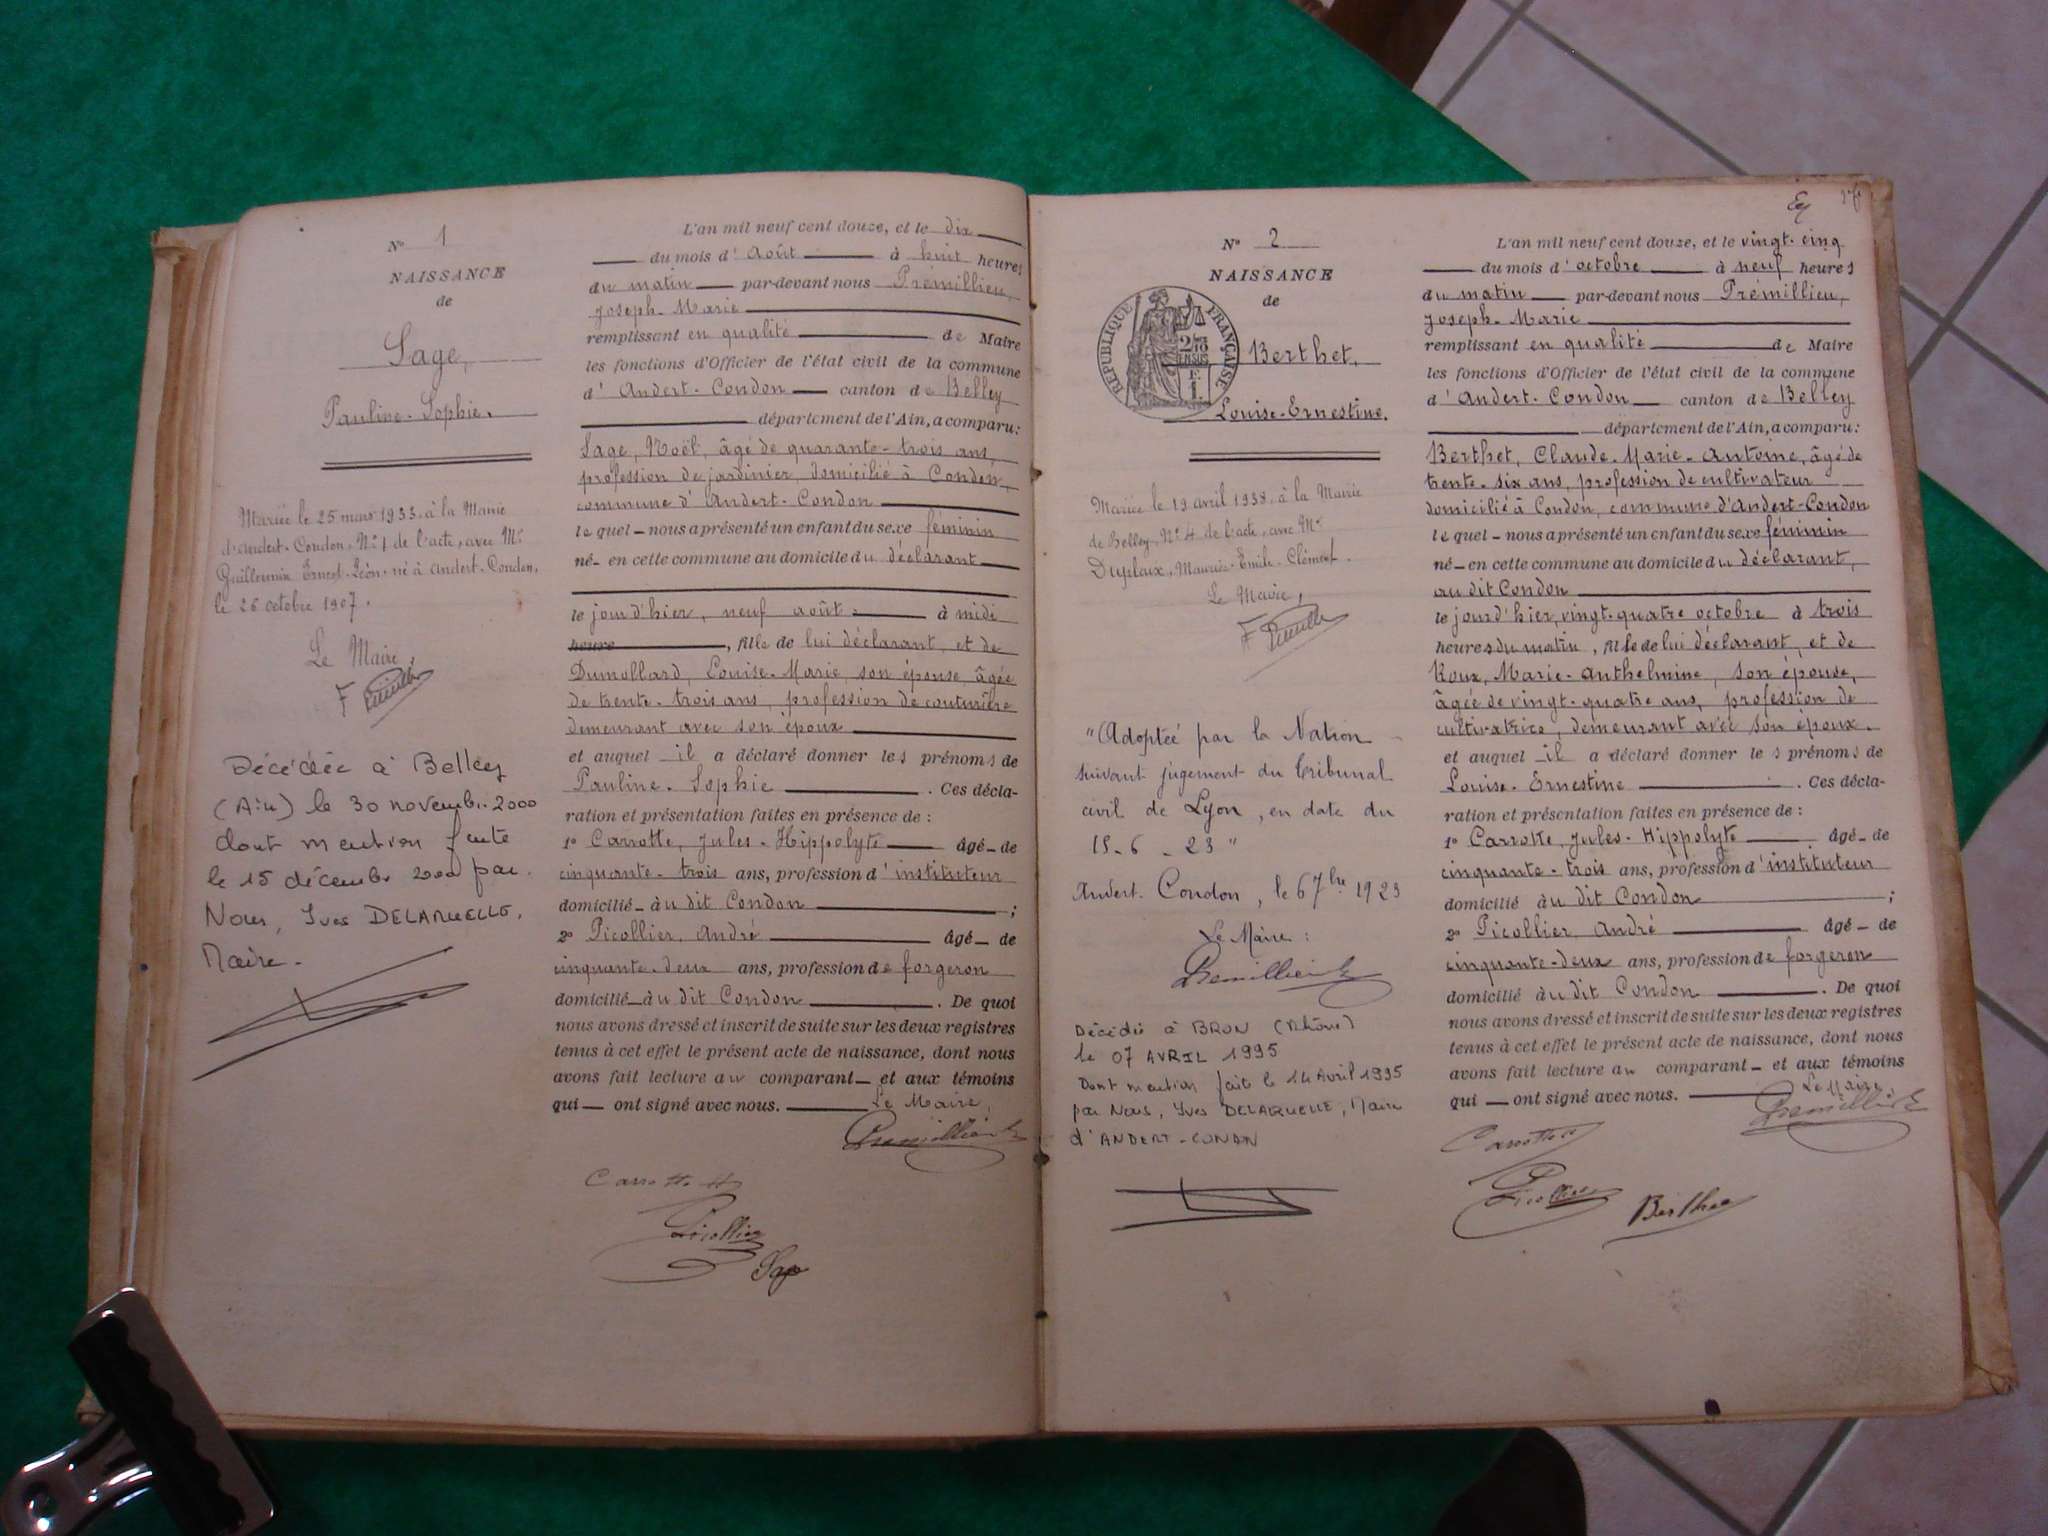 N° 1
NAISSANCE
de
Sage,
Pauline-Sophie.
Mariée le 25 mars 1933, à la Mairie
d'Andert-Condon, N° 1 de l'acte, avec Mr
Guillemin Ernest-Léon, né à Andert-Condon,
le 26 octobre 1907.
Le Maire,
Décédée à Belley
(Ain) le 30 novembre 2000
dont mention faite
le 15 décembre 2000 par
Nous, Yves DELARUELLE,
Maire.
L'an mil neuf cent douze, et le dix
du mois d'Août à huit heures
du matin par-devant nous Prémillieu,
Joseph-Marie
remplissant en qualité de Maire
les fonctions d'Officier de l'état civil de la commune
d'Andert-Condon canton de Belley
département de l'Ain, a comparu:
Sage, Noël, âgé de quarante-trois ans,
profession de jardinier, domicilié à Condon,
commune d'Andert-Condon
le quel nous a présenté un enfant du sexe féminin
né en cette commune au domicile du déclarant
le jour d'hier, neuf août à midi
heure, fille de lui déclarant, et de
Dumollard, Louise-Marie, son épouse, âgée
de trente-trois ans, profession de couturière
demeurant avec son époux
et auquel il a déclaré donner les prénoms de
Pauline-Sophie. Ces décla-
ration et présentation faites en présence de :
1° Carrotte, Jules-Hippolyte âgé de
cinquante-trois ans, profession d'instituteur
domicilié à u dit Condon ;
2° Picollier, André âgé de
cinquante-deux ans, profession de forgeron
domicilié à u dit Condon. De quoi
nous avons dressé et inscrit de suite sur les deux registres
tenus à cet effet le présent acte de naissance, dont nous
avons fait lecture au comparant et aux témoins
qui ont signé avec nous. Le Maire,
Premillieu
Carrotte
Picollier
Sage
N° 2
NAISSANCE
de
RÉPUBLIQUE FRANÇAISE
Berthet,
Louise-Ernestine.
Mariée le 19 avril 1938, à la Mairie
de Belley, N° 4 de l'acte, avec Mr
Duplaux, Maurice-Emile-Clément.
Le Maire,
"Adoptée par la Nation
suivant jugement du Tribunal
civil de Lyon, en date du
15-6-23"
Andert-Condon, le 6 7bre 1923
Le Maire :
Premillieu
Décédée à BRON (Rhône)
le 07 AVRIL 1995
Dont mention fait le 14 Avril 1995
par Nous, Yves DELARUELLE, Maire
d'ANDERT-CONDON
L'an mil neuf cent douze, et le vingt-cinq
du mois d'octobre à neuf heures
du matin par-devant nous Prémillieu,
Joseph-Marie
remplissant en qualité de Maire
les fonctions d'Officier de l'état civil de la commune
d'Andert-Condon canton de Belley
département de l'Ain, a comparu:
Berthet, Claude-Marie-Antoine, âgé de
trente-six ans, profession de cultivateur
domicilié à Condon, commune d'Andert-Condon
le quel nous a présenté un enfant du sexe féminin
né en cette commune au domicile du déclarant,
au dit Condon
le jour d'hier, vingt-quatre octobre à trois
heures du matin, fille de lui déclarant, et de
Roux, Marie-Anthelmine, son épouse,
âgée de vingt-quatre ans, profession de
cultivatrice, demeurant avec son époux.
et auquel il a déclaré donner les prénoms de
Louise-Ernestine. Ces décla-
ration et présentation faites en présence de :
1° Carrotte, Jules-Hippolyte âgé de
cinquante-trois ans, profession d'instituteur
domicilié à u dit Condon ;
2° Picollier, André âgé de
cinquante-deux ans, profession de forgeron
domicilié à u dit Condon. De quoi
nous avons dressé et inscrit de suite sur les deux registres
tenus à cet effet le présent acte de naissance, dont nous
avons fait lecture au comparant et aux témoins
qui ont signé avec nous. Le Maire,
Premillieu
Carrotte
Picollier
Berthet